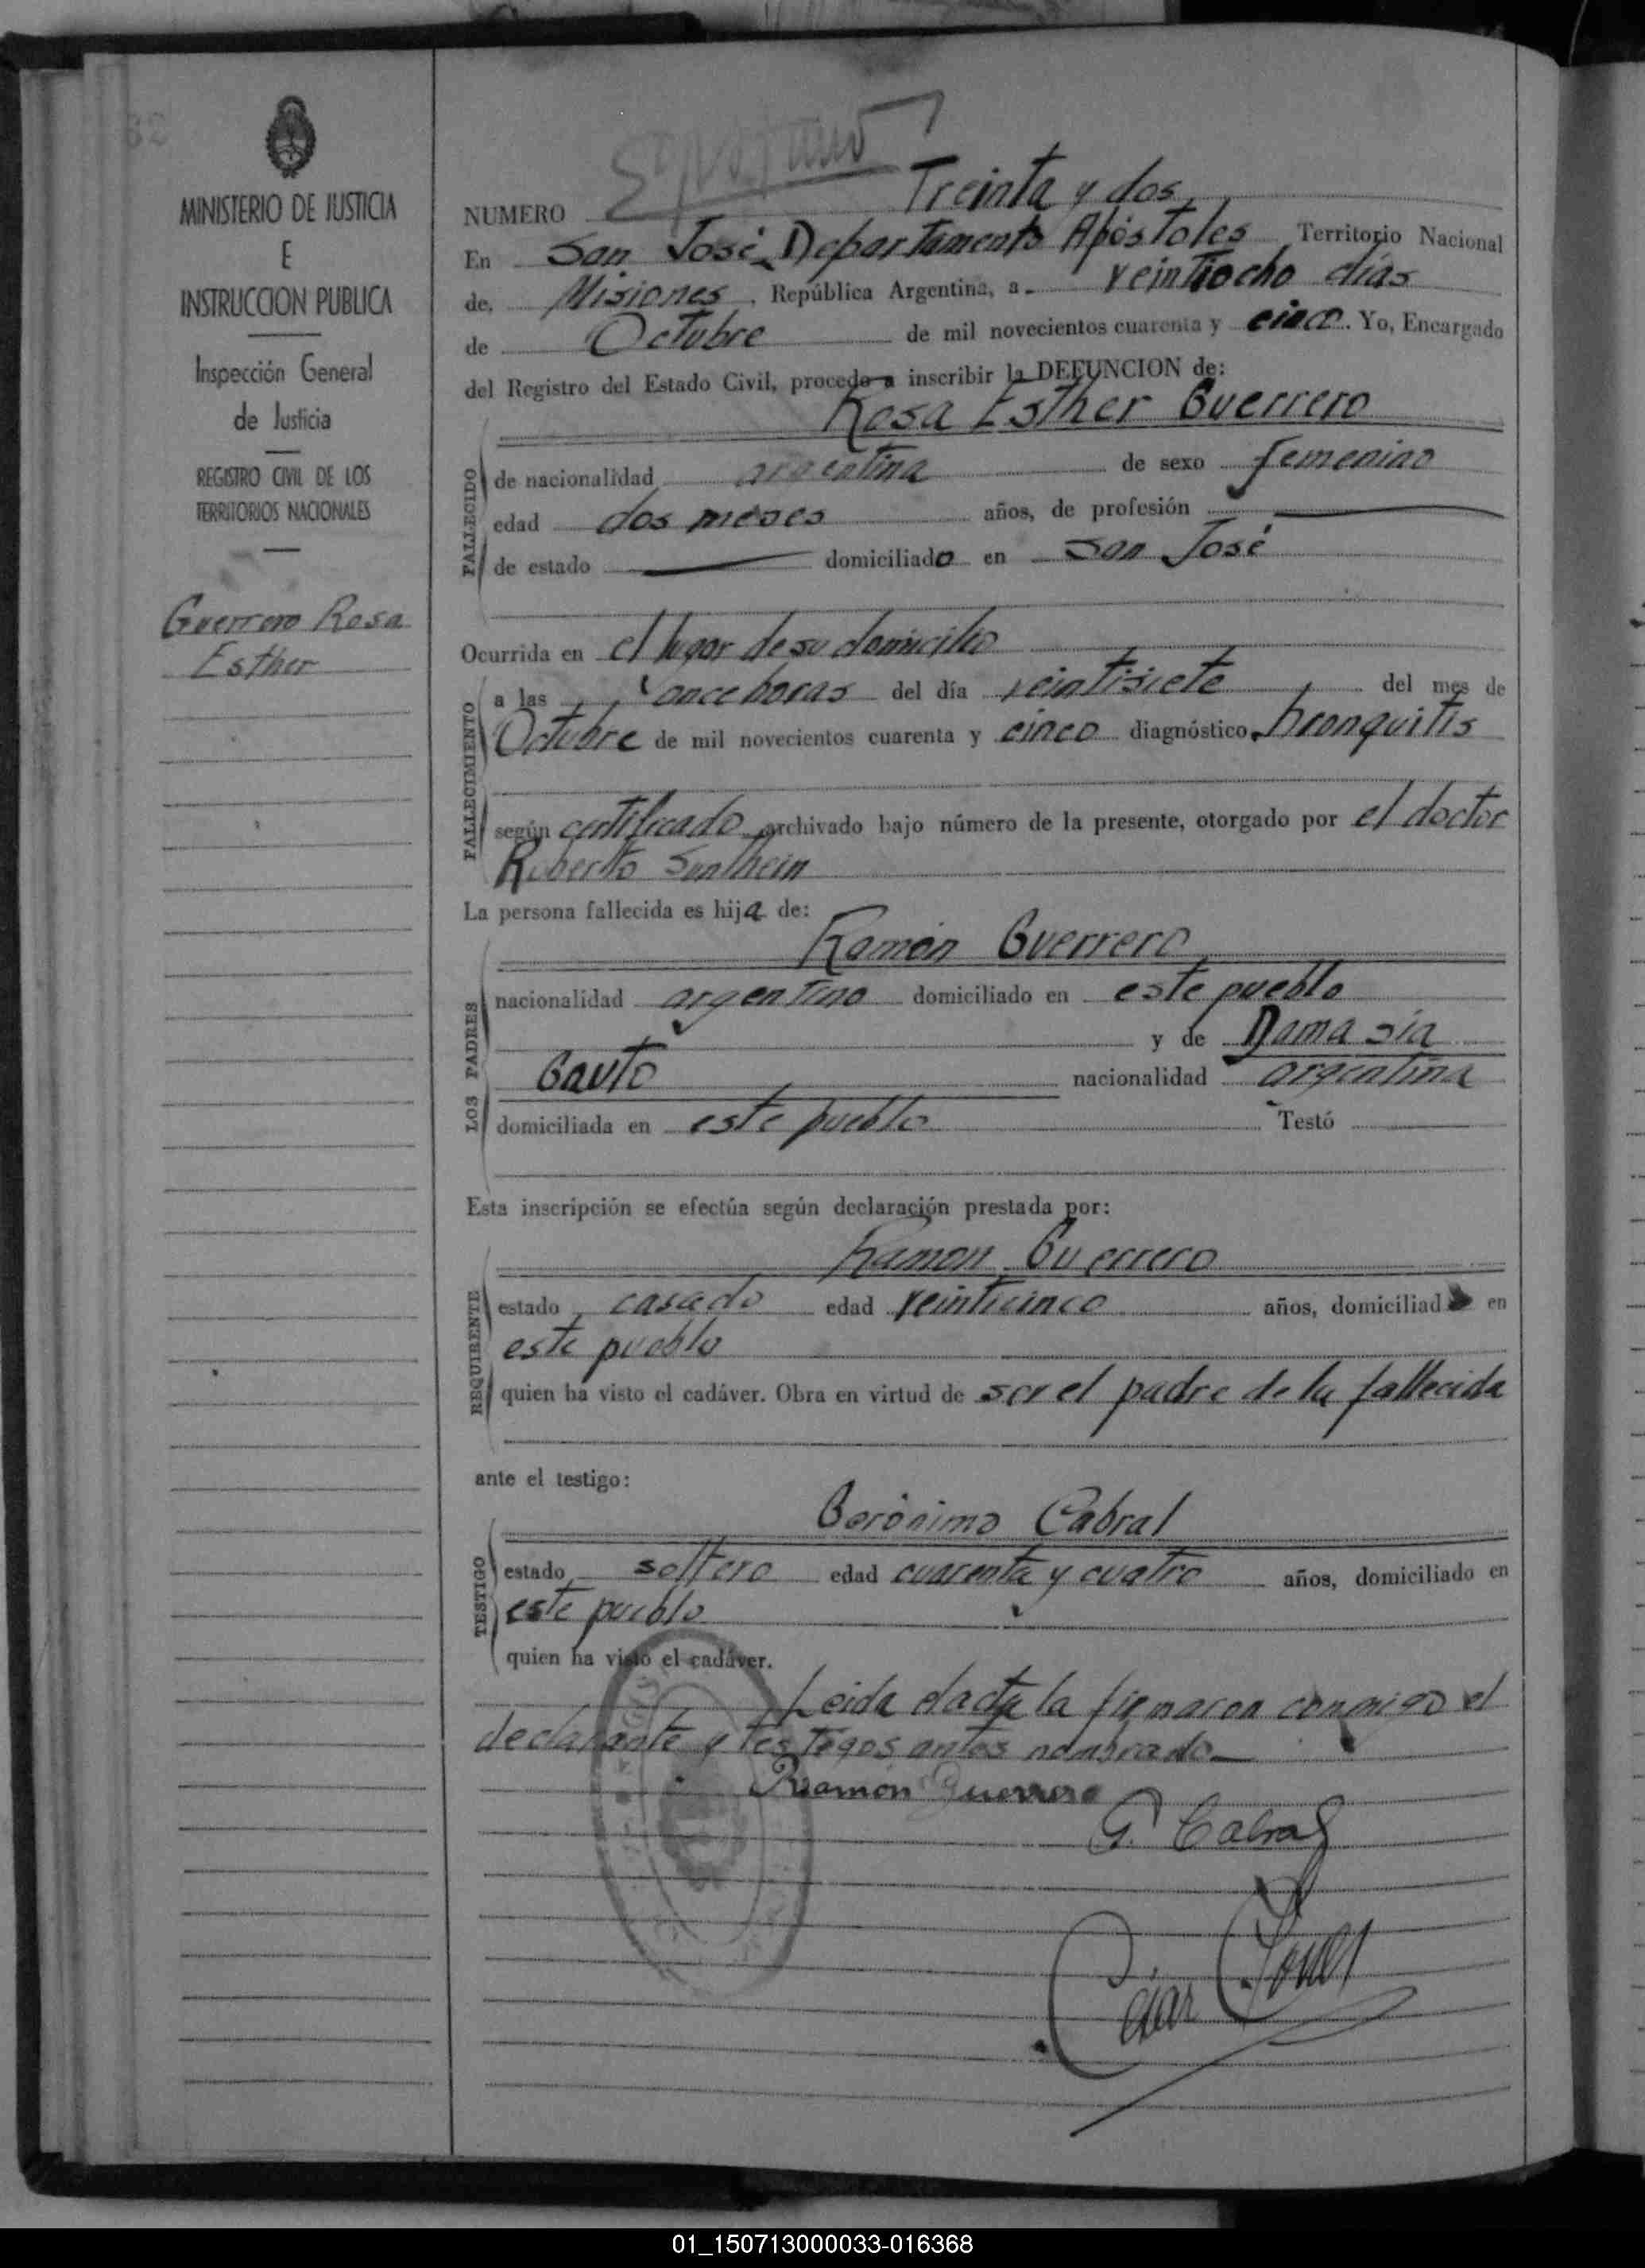 32
MINISTERIO DE JUSTICIA
E
INSTRUCCION PUBLICA
Inspección General
de Justicia
REGISTRO CIVIL DE LOS
TERRITORIOS NACIONALES
Guerrero Rosa
Esther
NUMERO Treinta y dos
En San José Departamento Apóstoles Territorio Nacional
de, Misiones, República Argentina, a veintiocho días
de Octubre de mil novecientos cuarenta y cinco. Yo, Encargado
del Registro del Estado Civil, procedo a inscribir la DEFUNCION de:
Rosa Esther Guerrero
FALLECIDO
de nacionalidad argentina de sexo femenino
edad dos meses años, de profesión
de estado domiciliado en San José
Ocurrida en el lugar de su domicilio
FALLECIMIENTO
a las once horas del día veintisiete del mes de
Octubre de mil novecientos cuarenta y cinco diagnóstico bronquitis
según certificado archivado bajo número de la presente, otorgado por el doctor
Roberto
La persona fallecida es hija de:
Ramón Guerrero
LOS PADRES
nacionalidad argentino domiciliado en este pueblo
y de Damasia
Gauto nacionalidad argentina
domiciliada en este pueblo Testó
Esta inscripción se efectúa según declaración prestada por:
Ramon Guerrero
REQUIRENTE
estado casado edad veinticinco años, domiciliad en
este pueblo
quien ha visto el cadáver. Obra en virtud de ser el padre de la fallecida
ante el testigo:
Gerónimo Cabral
TESTIGO
estado soltero edad cuarenta y cuatro años, domiciliado en
este pueblo
quien ha visto el cadáver.
Leida el acta la firmaron conmigo el
declarante y testigos antes nombrado
Ramón Guerrero
G. Cabral
01_150713000033-016368